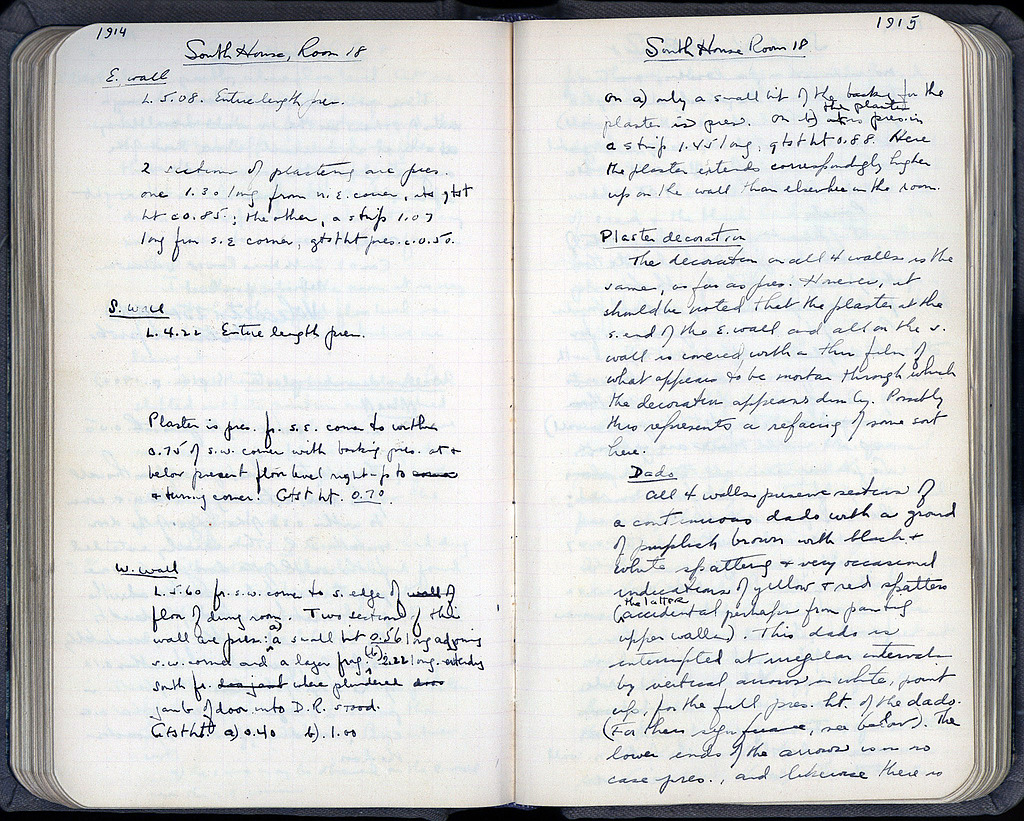 1914
South House, Room 18
E. wall
L. 5.08. Entire length pres.
2 sections of plastering are pres.
one 1.30 long from N.E. corner, its gtst
ht c 0.85.; the other, a strip 1.07
long from S.E corner, gtst ht pres. c. 0.50.
S. wall
L. 4.22 Entire length pres.
Plaster is pres. fr. S.E. corner to within
0.75 of S.W. corner with backing pres. at +
below present floor level right up to
+ turning corner. Gtst ht. 0.70.
W. wall
L. 5.60 fr. S.W. corner to S. edge of wall of
floor of dining room. Two sections of this
wall are pres: a) a small bit 0.56 long adjoining
S.W. corner and a larger frag. (b) 2.22 long. extending
south fr. door jamb where plastered door
jamb of door into D.R. stood.
Gtst ht. a) 0.40 b). 1.00
1915
South House Room 18
on a) only a small bit of the backing for the
plaster is pres. on b) the plaster is pres. in
a strip 1.45 long, gtst ht 0.88. Here
the plaster extends correspondingly higher
up on the wall than elsewhere in the room.
Plaster decoration
The decoration on all 4 walls is the
same, as far as pres. However, it
should be noted that the plaster at the
S. end of the E. wall and all on the S.
wall is covered with a thin film of
what appears to be mortar through which
the decoration appears dimly. Possibly
this represents a refacing of some sort
here.
Dado
All 4 walls preserve sections of
a continuous dado with a ground
of purplish brown with black +
white spatting + very occasional
indications of yellow + red spatters
(the latter accidental perhaps from painting
upper walls). This dado is
interrupted at irregular intervals
by vertical arrows in white, point
up, for the full pres. ht. of the dado.
(For their significance, see below). The
lower ends of the arrows is in no
case pres., and likewise there is